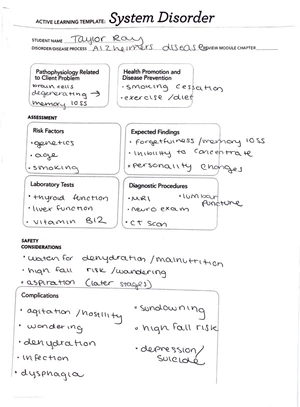 ACTIVE LEARNING TEMPLATE: System Disorder
STUDENT NAME Taylor Ray
DISORDER/DISEASE PROCESS Alzheimers disease REVIEW MODULE CHAPTER
Pathophysiology Related
to Client Problem
brain cells
degenerating →
memory loss
Health Promotion and
Disease Prevention
• smoking cessation
• exercise / diet
ASSESSMENT
Risk Factors
• genetics
• age
• smoking
Expected Findings
• forgetfulness / memory loss
• inibility to concentrate
• personality changes
Laboratory Tests
• thyroid function
• liver function
• vitamin B12
Diagnostic Procedures
• MRI
• neuro exam
• CT scan
• lumbar
puncture
SAFETY
CONSIDERATIONS
• watch for dehydration / malnutrition
• high fall risk / wandering
• aspiration (later stages)
Complications
• agitation / hostility
• wondering
• dehydration
• infection
• dysphagia
• sundowning
• high fall risk
• depression/
suicide